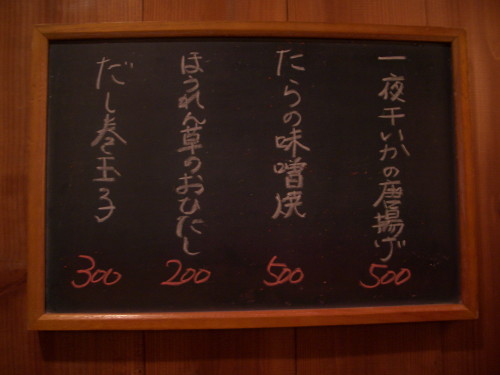 一夜干いかの唐揚げ
500
たらの味噌焼
500
ほうれん草のおひたし
200
だし巻玉子
300